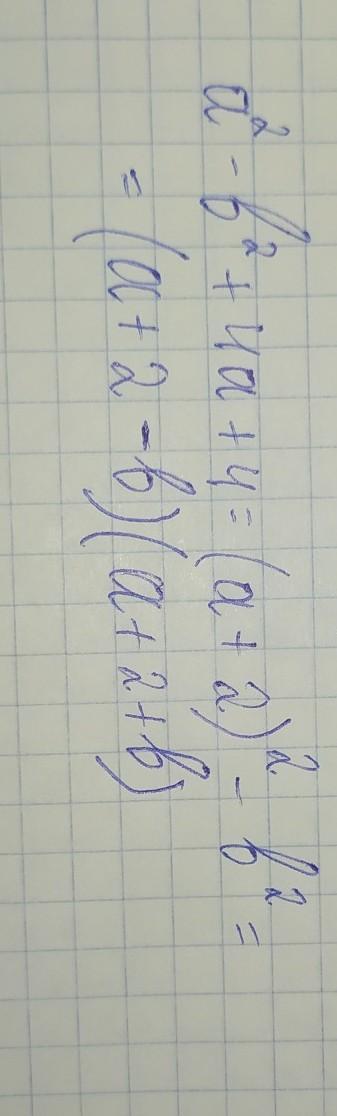 a² - b² + 4a + 4 = (a + 2)² - b² =
= (a + 2 - b)(a + 2 + b)